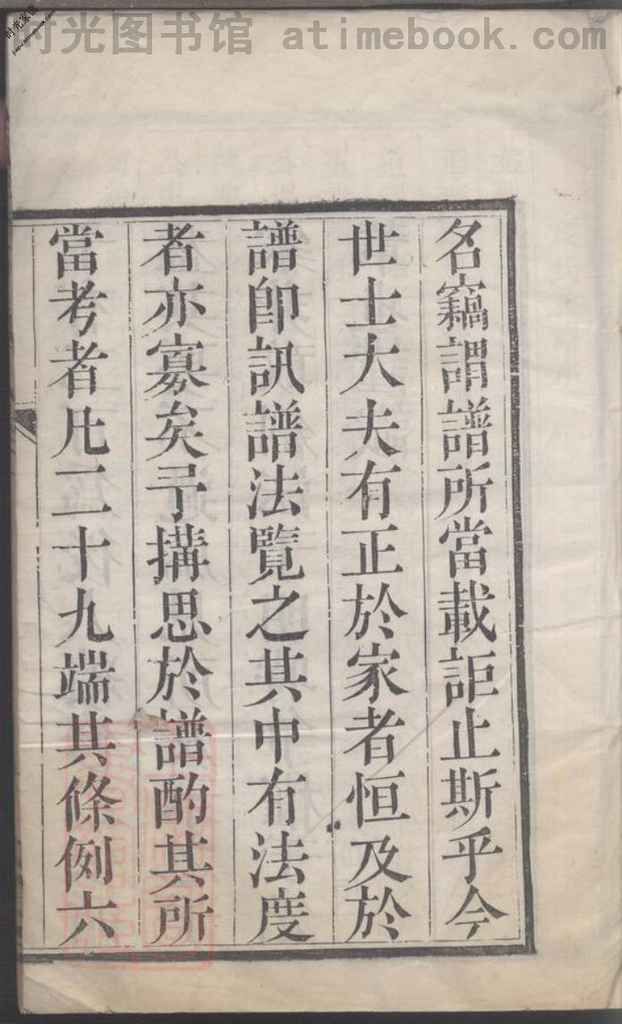 时光图书馆 atimebook.com
名竊謂譜所當載詎止斯乎今
世士大夫有正於家者恒及於
譜卽訊譜法覽之其中有法度
者亦寡矣予搆思於譜酌其所
當考者凡二十九端其條例六